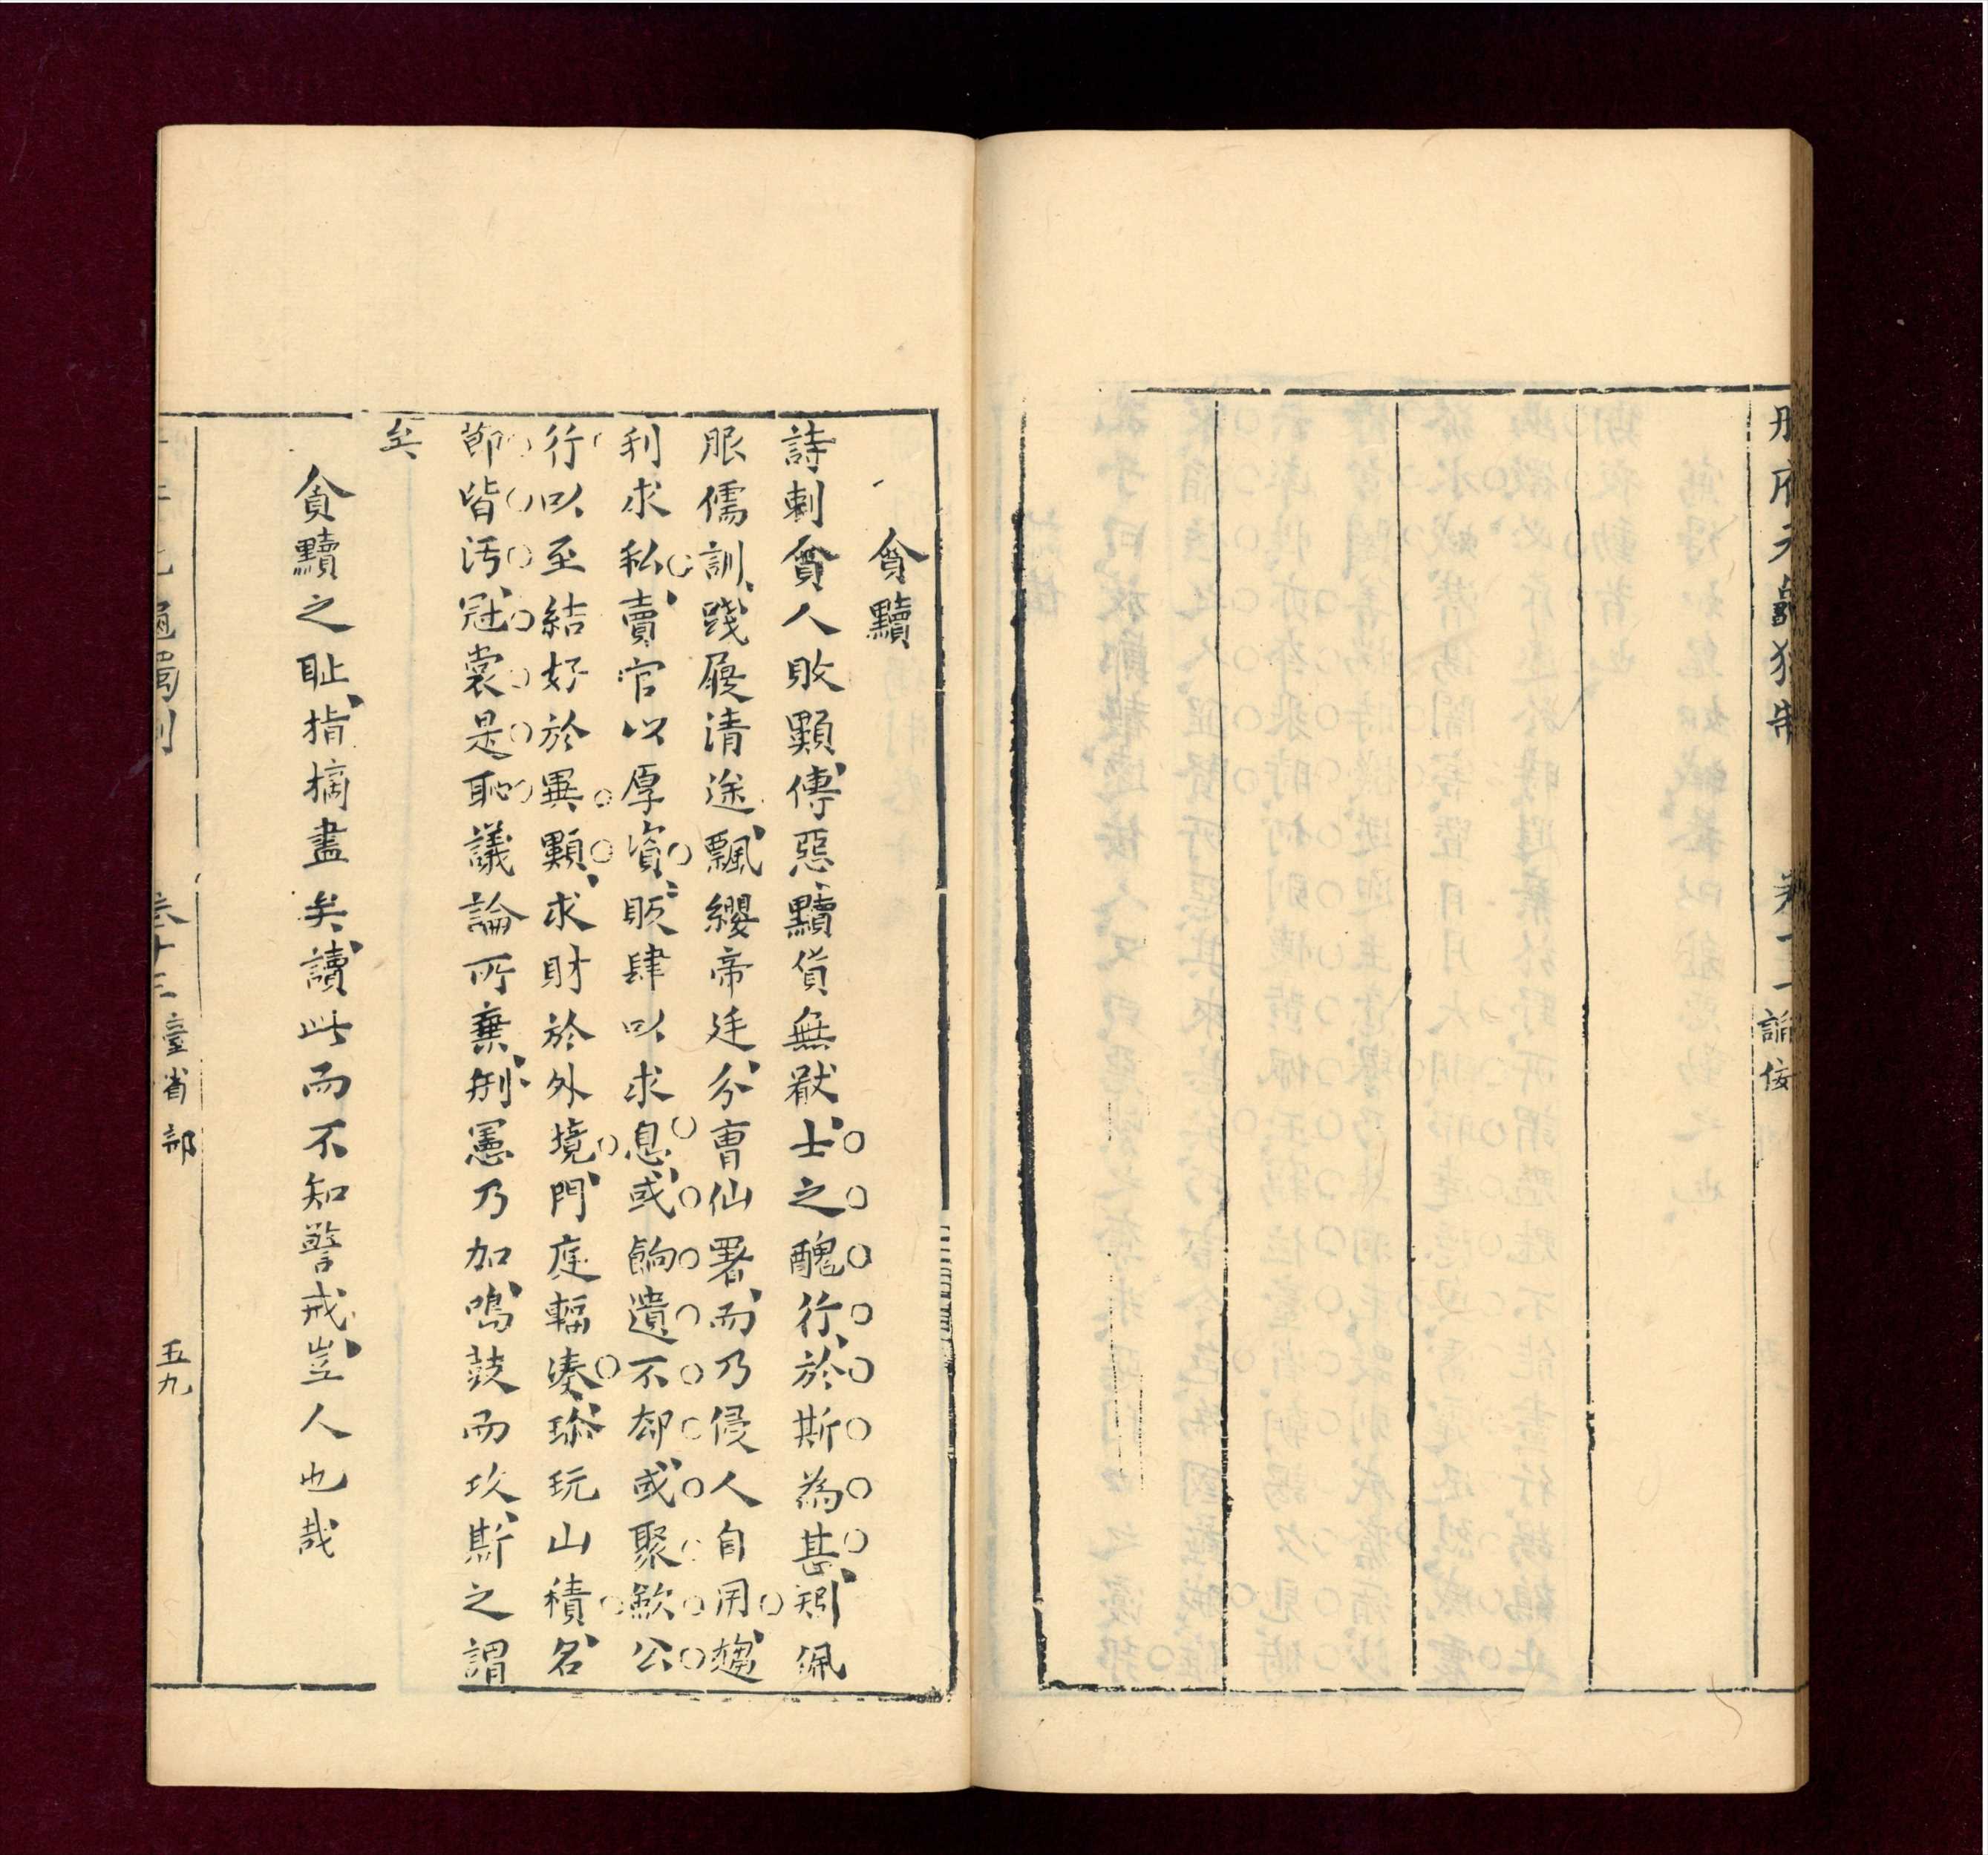 冊府元龜獨制 卷十三 諂佞
貪黷
詩刺貪人敗類、傳惡黷貨無厭、士之醜行、於斯為甚、矧佩
服儒訓、踐履清途、飄纓帝廷、分曹仙署、而乃侵人自用、趨
利求私、賣官以厚資、販肆以求息、或餉遺不却、或聚歛公
行以至結好於異類、求財於外境、門庭輻湊、珎玩山積、名
節皆汚、冠裳是恥、議論所棄、刑憲乃加、鳴鼓而攻、斯之謂
矣
貪黷之耻、指摘盡矣、讀此而不知警戒、豈人也哉
卷十三 臺省部 五九